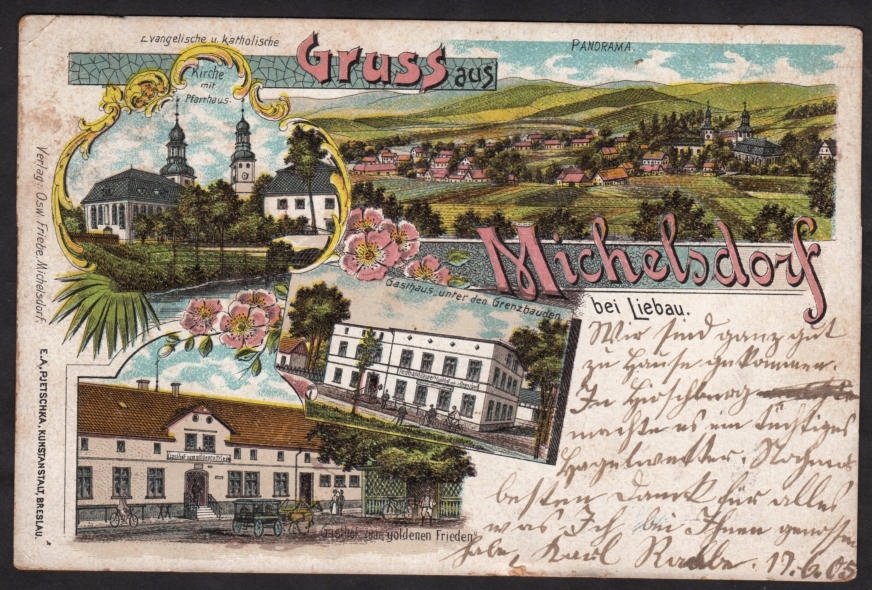 Evangelische u. katholische
Kirche
mit
Pfarrhaus.
Gruss aus
PANORAMA.
Michelsdorf
bei Liebau.
Gasthaus „unter den Grenzbauden
Gasthof zum goldenen Frieden
Gasthof zum „goldenen Frieden"
Verlag: Osw. Friebe, Michelsdorf.
E. A. PJETSCHKA, KUNSTANSTALT, BRESLAU.
Wir sind ganz gut
zu Hause gekommen.
In Hirschberg
machte es ein tüchtiges
Hagelwetter. Nochmals
besten Dank für alles
was Ich bei Ihnen genossen
habe, Karl Raabe. 17.6.05